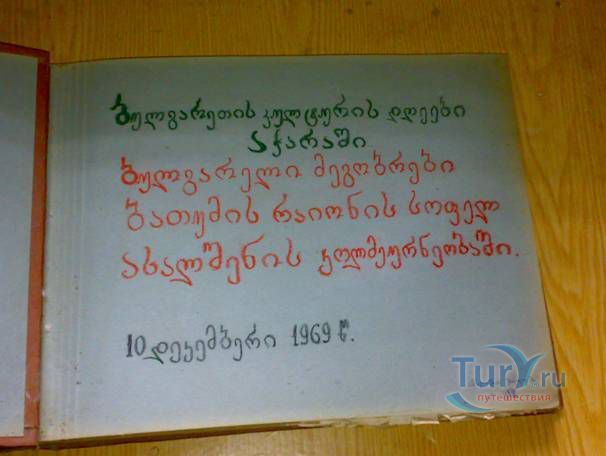 ბულგარეთის კულტურის დღეები
აჭარაში
ბულგარელი მეგობრები
ბათუმის რაიონის სოფელ
ახალშენის კოლმეურნეობაში.
10 დეკემბერი 1969 წ.
Tury.ru
путешествия